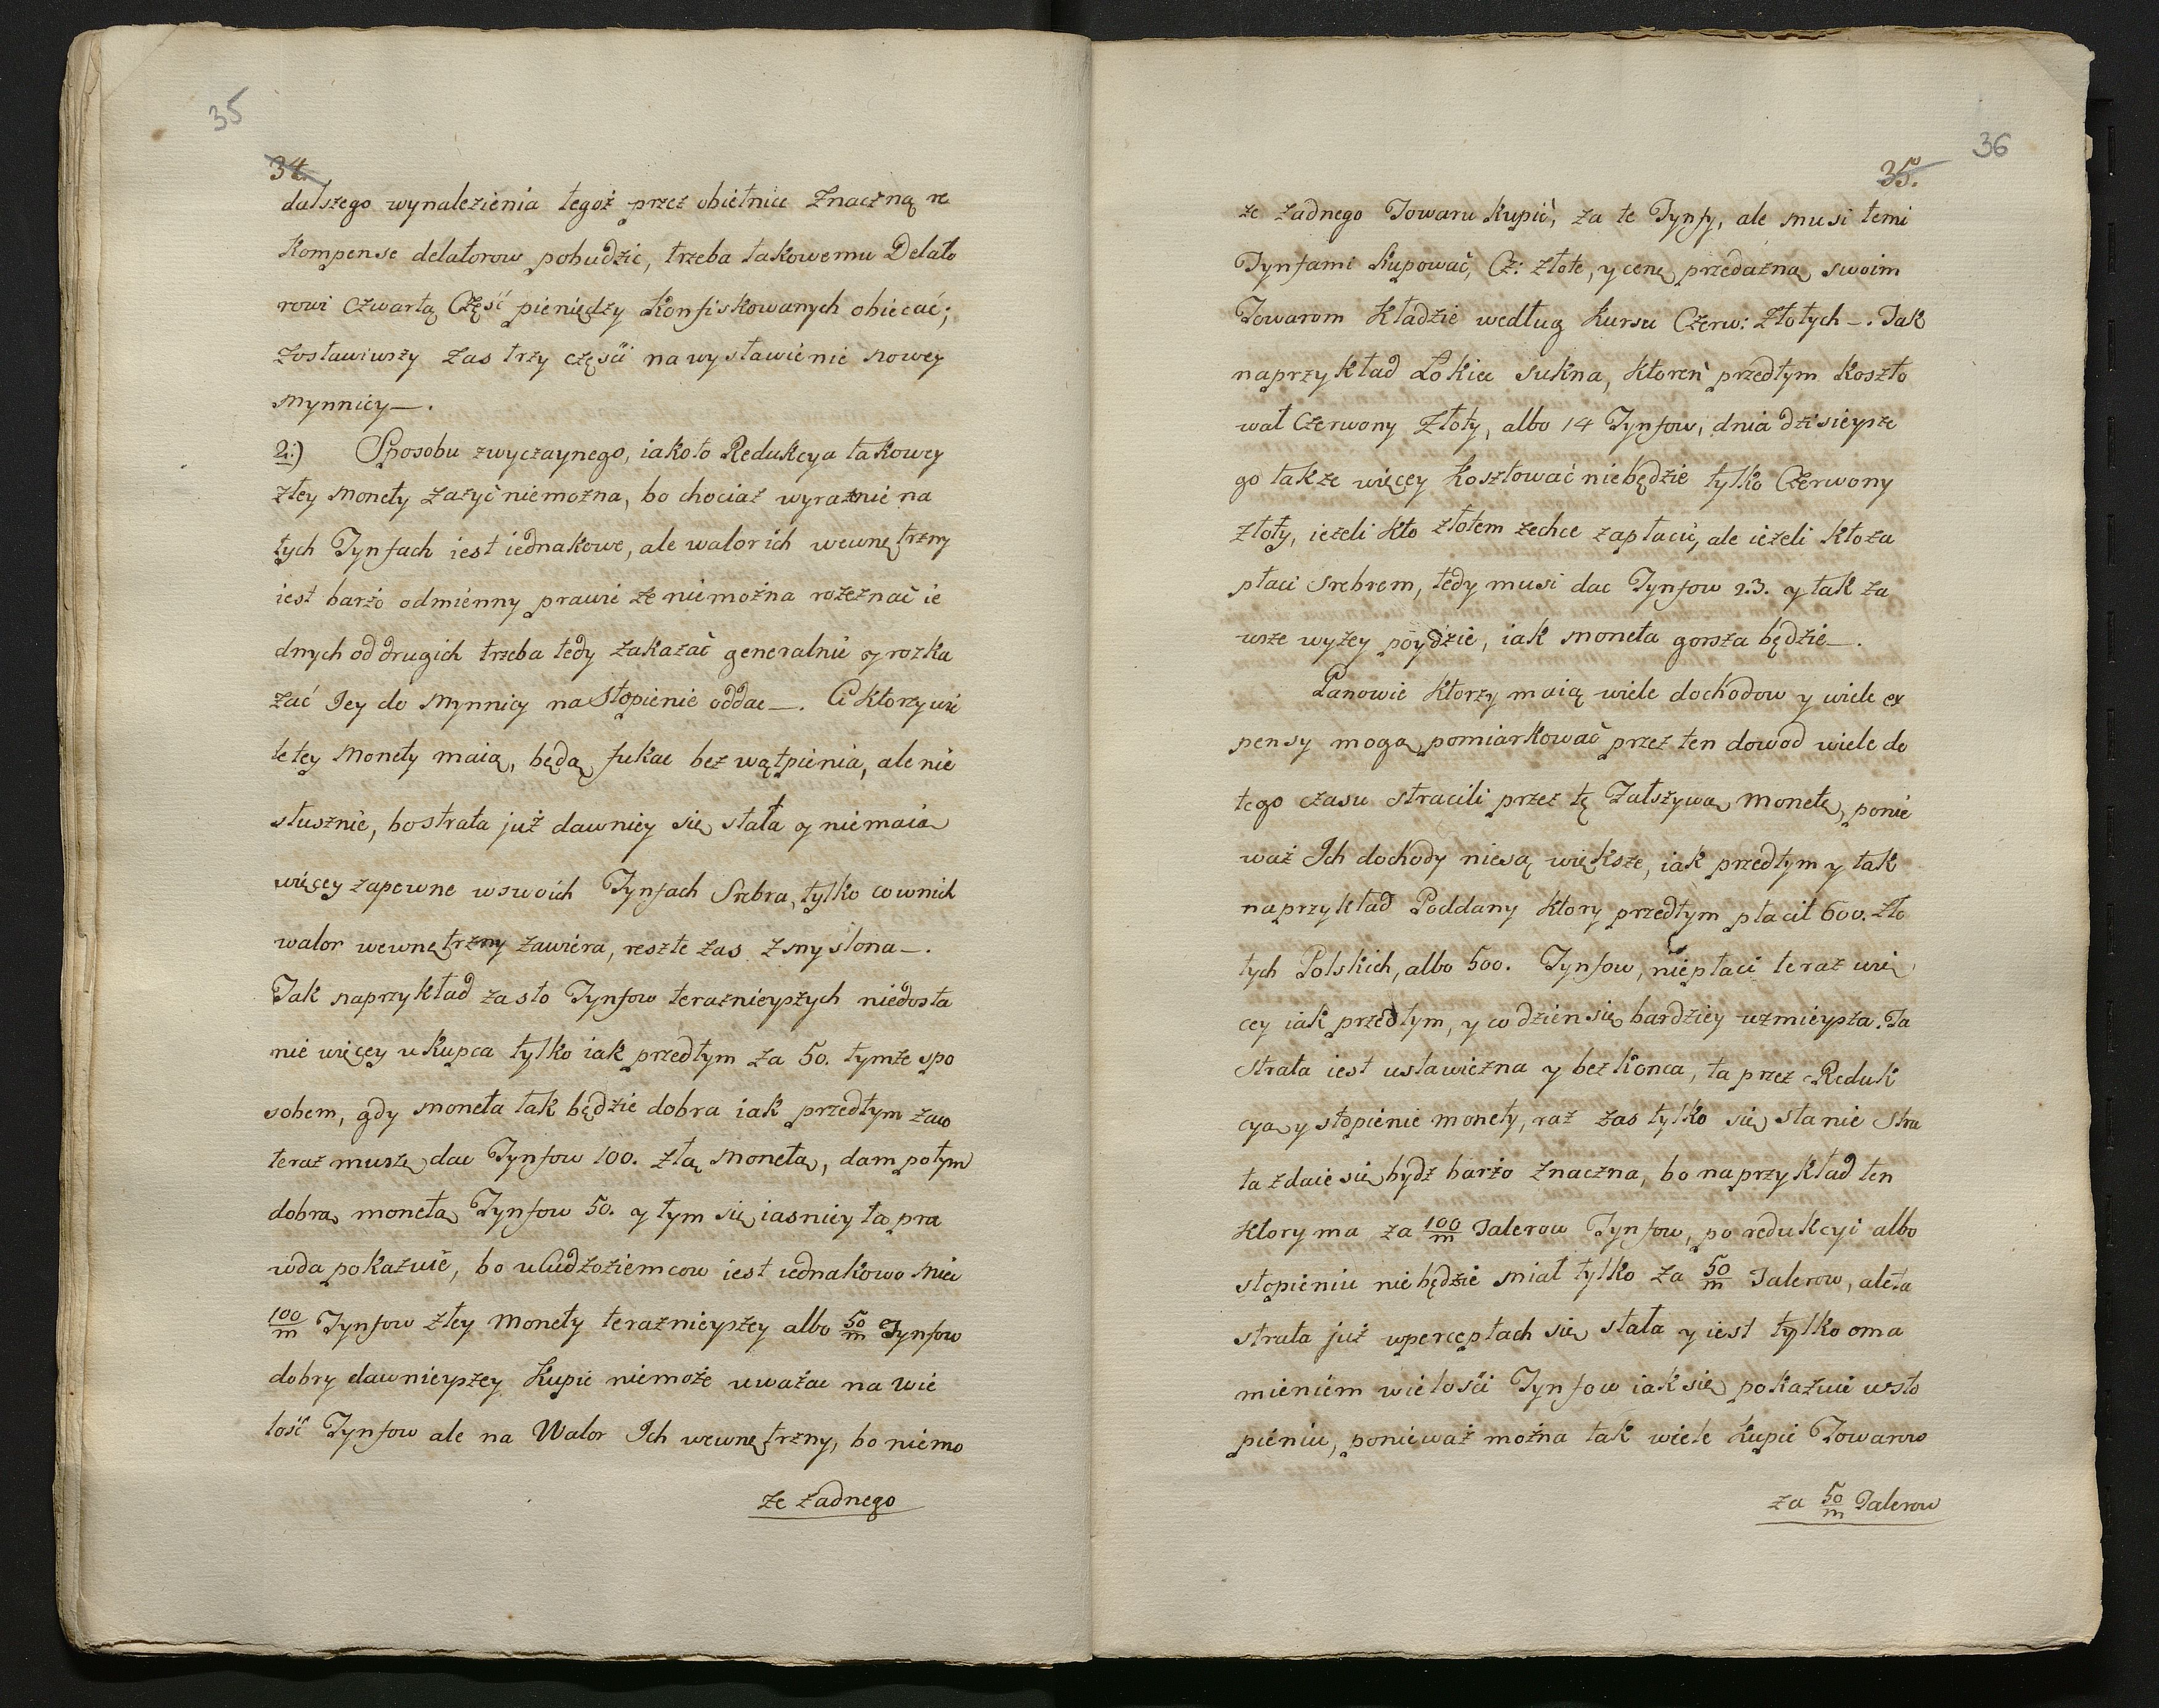 35
34.
dalszego wynalezienia tegoż przez obietnice Znaczną re
kompense delatorow pobudzic, trzeba takowemu Delato
rowi Czwartą Część pieniędzy konfiskowanych obiecać;
Zostawiwszy Zas trzy części na wystawienie nowey
Mynnicy—.
2:) Sposobu zwyczaynego, iakoto Redukcya takowey
złey Monety Zażyć niemożna, bo chociaż wyraźnie na
tych Tynfach iest iednakowe, ale walor ich wewnętrzny
iest barżo odmienny prawie że niemożna rozeznać ie
dnych od drugich trzeba tedy Zakazać generalnie y rozka
zać Jey do Mynnicy na Stopienie oddac—. Ci ktorzy wie
le tey Monety maią, będą fukac bez wątpienia, ale nie
słusznie, bo strata już dawniey się stała y niemaią
więcey zapewne w swoich Tynfach Srebra, tylko co w nich
walor wewnętrzny Zawiera, reszte zas Zmyslona—.
Tak naprzykład za sto Tynfow teraznieyszych niedosta
nie więcey u kupca tylko iak przedtym Za 50. tymże spo
sobem, gdy moneta tak będzie dobra iak przedtym Zaco
teraz muszę dac Tynfow 100. Złą Monetą, dam potym
dobrą monetą Tynfow 50. y tym się iasniey ta pra
wda pokazuie, bo u Cudzoziemcow iest iednakowo Miec
100/m Tynfow złey Monety teraznieyszey albo 50/m Tynfow
dobry dawnieyszey Kupie niemoże uważac na Wie
lość Tynfow ale na Walor Ich wewnętrzny, bo niemo
że żadnego
36
35.
że żadnego Towaru kupić, za te Tynfy, ale musi temi
Tynfami kupować, Cz: złote, y cenę przedażną swoim
Towarom kładzie według kursu Czerw: Złotych—. Jak
naprzykład Łokieć sukna, ktoren przedtym koszto
wał Czerwony Złoty, albo 14 Tynfow, dnia dzisieysze
go także więcey kosztować niebędzie tylko Czerwony
Złoty, ieżeli kto złotem zechce zapłacić, ale ieżeli kto za
płaci srebrem, tedy musi dac Tynfow 23. y tak za
wsze wyżey poydzie, iak moneta gorsza będzie—.
Panowie ktorzy maią wiele dochodow y wiele ex
pensy mogą pomiarkować przez ten dowod wiele do
tego czasu stracili przez tę Załszywą Monetę, ponie
waż Ich dochody niesą większe, iak przedtym y tak
naprzykład Poddany ktory przedtym płacił 600. Zło
tych Polskich, albo 500. Tynfow, niepłaci teraz wię
cey iak przedtym, y co dzien się bardziey uzmieysza. Ta
strata iest ustawiczna y bez konca, ta przez Reduk
cyą y stopienie monety, raz zas tylko się stanie stra
ta zdaie się bydź barżo Znaczna, bo naprzykład ten
ktory ma za 100/m Talerow Tynfow, po redukcyi albo
stopieniu niebędzie miał tylko za 50/m Talerow, ale ta
strata już wperceptach się stała y iest tylko oma
mieniem wielosći Tynfow iak się pokazuie wsto
pieniu, ponieważ można tak wiele kupie Towarow
za 50/m Talerow